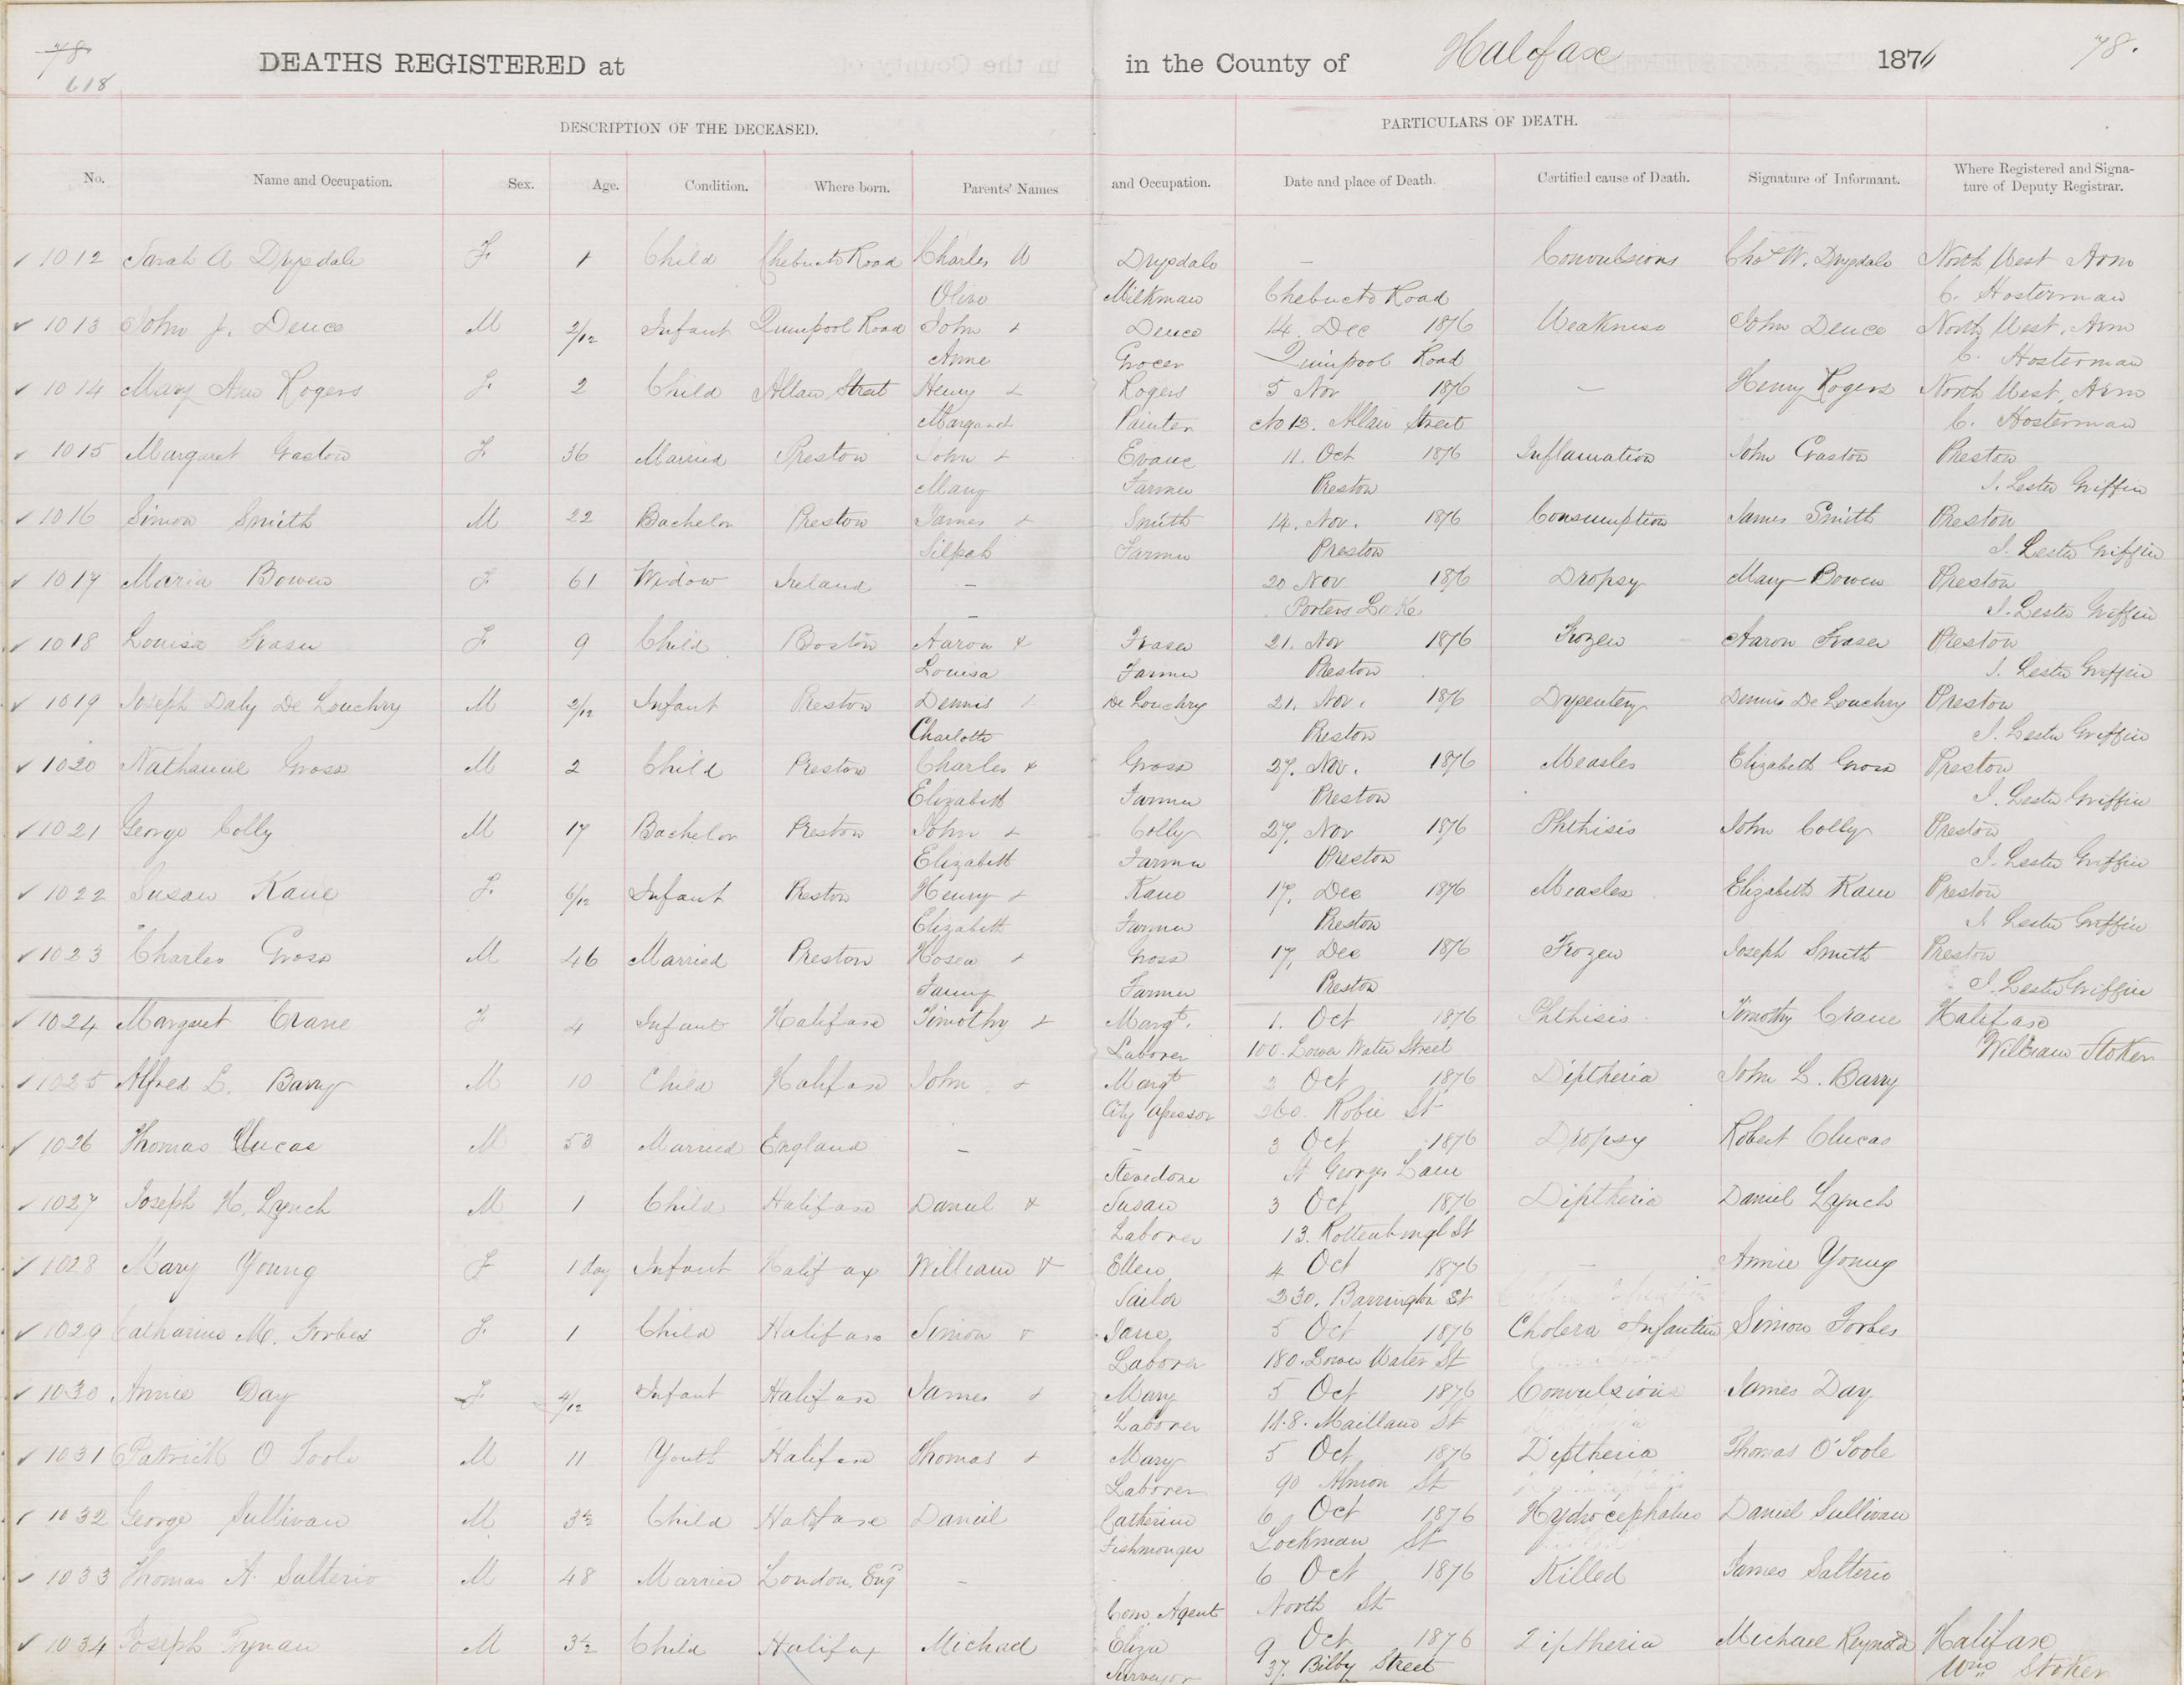 78
618
DEATHS REGISTERED at in the County of Halifax 1876 78.
DESCRIPTION OF THE DECEASED. PARTICULARS OF DEATH.
No. Name and Occupation. Sex. Age. Condition. Where born. Parents' Names and Occupation. Date and place of Death. Certified cause of Death. Signature of Informant. Where Registered and Signa-
ture of Deputy Registrar.
✓ 1012 Sarah A Drysdale F 1 Child Chebucto Road Charles W Drysdale — Convulsions Chas W. Drysdale North West Arm
Olive Milkman Chebucto Road C. Hosterman
✓ 1013 John J. Deuce M 2/12 Infant Quinpool Road John + Deuce 14. Dec 1876 Weakness John Deuce North West Arm
Anne Grocer Quinpool Road C. Hosterman
✓ 1014 Mary Ann Rogers F. 2 Child Allan Street Henry + Rogers 5 Nov 1876 — Henry Rogers North West Arm
Margaret Painter No 13. Allan Street C. Hosterman
✓ 1015 Margaret Gaston F. 36 Married Preston John + Evans 11. Oct 1876 Inflamation John Gaston Preston
Mary Farmer Preston I. Lester Griffin
✓ 1016 Simon Smith M 22 Bachelor Preston James + Smith 14. Nov. 1876 Consumption James Smith Preston
Silpah Farmer Preston I. Lester Griffin
✓ 1017 Maria Bowen F 61 Widow Ireland — 20 Nov 1876 Dropsy Mary Bowen Preston
— Porters Lake I. Lester Griffin
✓ 1018 Louisa Fraser F 9 Child Boston Aaron + Fraser 21. Nov 1876 Frozen Aaron Fraser Preston
Louisa Farmer Preston I. Lester Griffin
✓ 1019 Joseph Daly De Louchry M 2/12 Infant Preston Dennis + De Louchry 21. Nov. 1876 Dysentery Dennis De Louchry Preston
Charlotte Preston I. Lester Griffin
✓ 1020 Nathaniel Gross M 2 Child Preston Charles + Gross 27. Nov. 1876 Measles Elizabeth Gross Preston
Elizabeth Farmer Preston I. Lester Griffin
✓ 1021 George Colly M 17 Bachelor Preston John + Colly 27. Nov 1876 Phthisis John Colly Preston
Elizabeth Farmer Preston I. Lester Griffin
✓ 1022 Susan Kane F. 6/12 Infant Preston Henry + Kane 17. Dec 1876 Measles Elizabeth Kane Preston
Elizabeth Farmer Preston I. Lester Griffin
✓ 1023 Charles Gross M 46 Married Preston Hosea + Gross 17. Dec 1876 Frozen Joseph Smith Preston
Fanny Farmer Preston I. Lester Griffin
✓ 1024 Margaret Crane F 4 Infant Halifax Timothy + Margt. 1. Oct 1876 Phthisis. Timothy Crane Halifax
Laborer 100. Lower Water Street William Stoker
✓ 1025 Alfred L. Barry M 10 Child Halifax John + Margt 2 Oct 1876 Diptheria John L. Barry
City Assessor 260. Robie St
✓ 1026 Thomas Clucas M 53 Married England — — 3 Oct 1876 Dropsy Robert Clucas
Stevedore St Georges Lane
✓ 1027 Joseph H. Lynch M 1 Child Halifax Daniel + Susan 3 Oct 1876 Diptheria Daniel Lynch
Laborer 13. St
✓ 1028 Mary Young F 1 day Infant Halifax William + Ellen 4 Oct 1876 — Annie Young
Sailor 230. Barrington St
✓ 1029 Catharine M. Forbes F. 1 Child Halifax Simon + Jane 5 Oct 1876 Cholera Infantum Simon Forbes
Laborer 180. Lower Water St
✓ 1030 Annie Day F 4/12 Infant Halifax James + Mary 5 Oct 1876 Convulsions James Day
Laborer 118. Maitland St
✓ 1031 Patrick O Toole M 11 Youth Halifax Thomas + Mary 5 Oct 1876 Diptheria Thomas O'Toole
Laborer 90 Almon St
✓ 1032 George Sullivan M 3½ Child Halifax Daniel Catherine 6 Oct 1876 Hydrocephalus Daniel Sullivan
Fishmonger Lockman St
✓ 1033 Thomas A. Salterio M 48 Married London, Engd — 6 Oct 1876 Killed James Salterio
Com. Agent North St
✓ 1034 Joseph Tynan M 3½ Child Halifax Michael Eliza 9 Oct 1876 Diptheria Michael Halifax
Surveyor 37. Bilby Street Wm Stoker